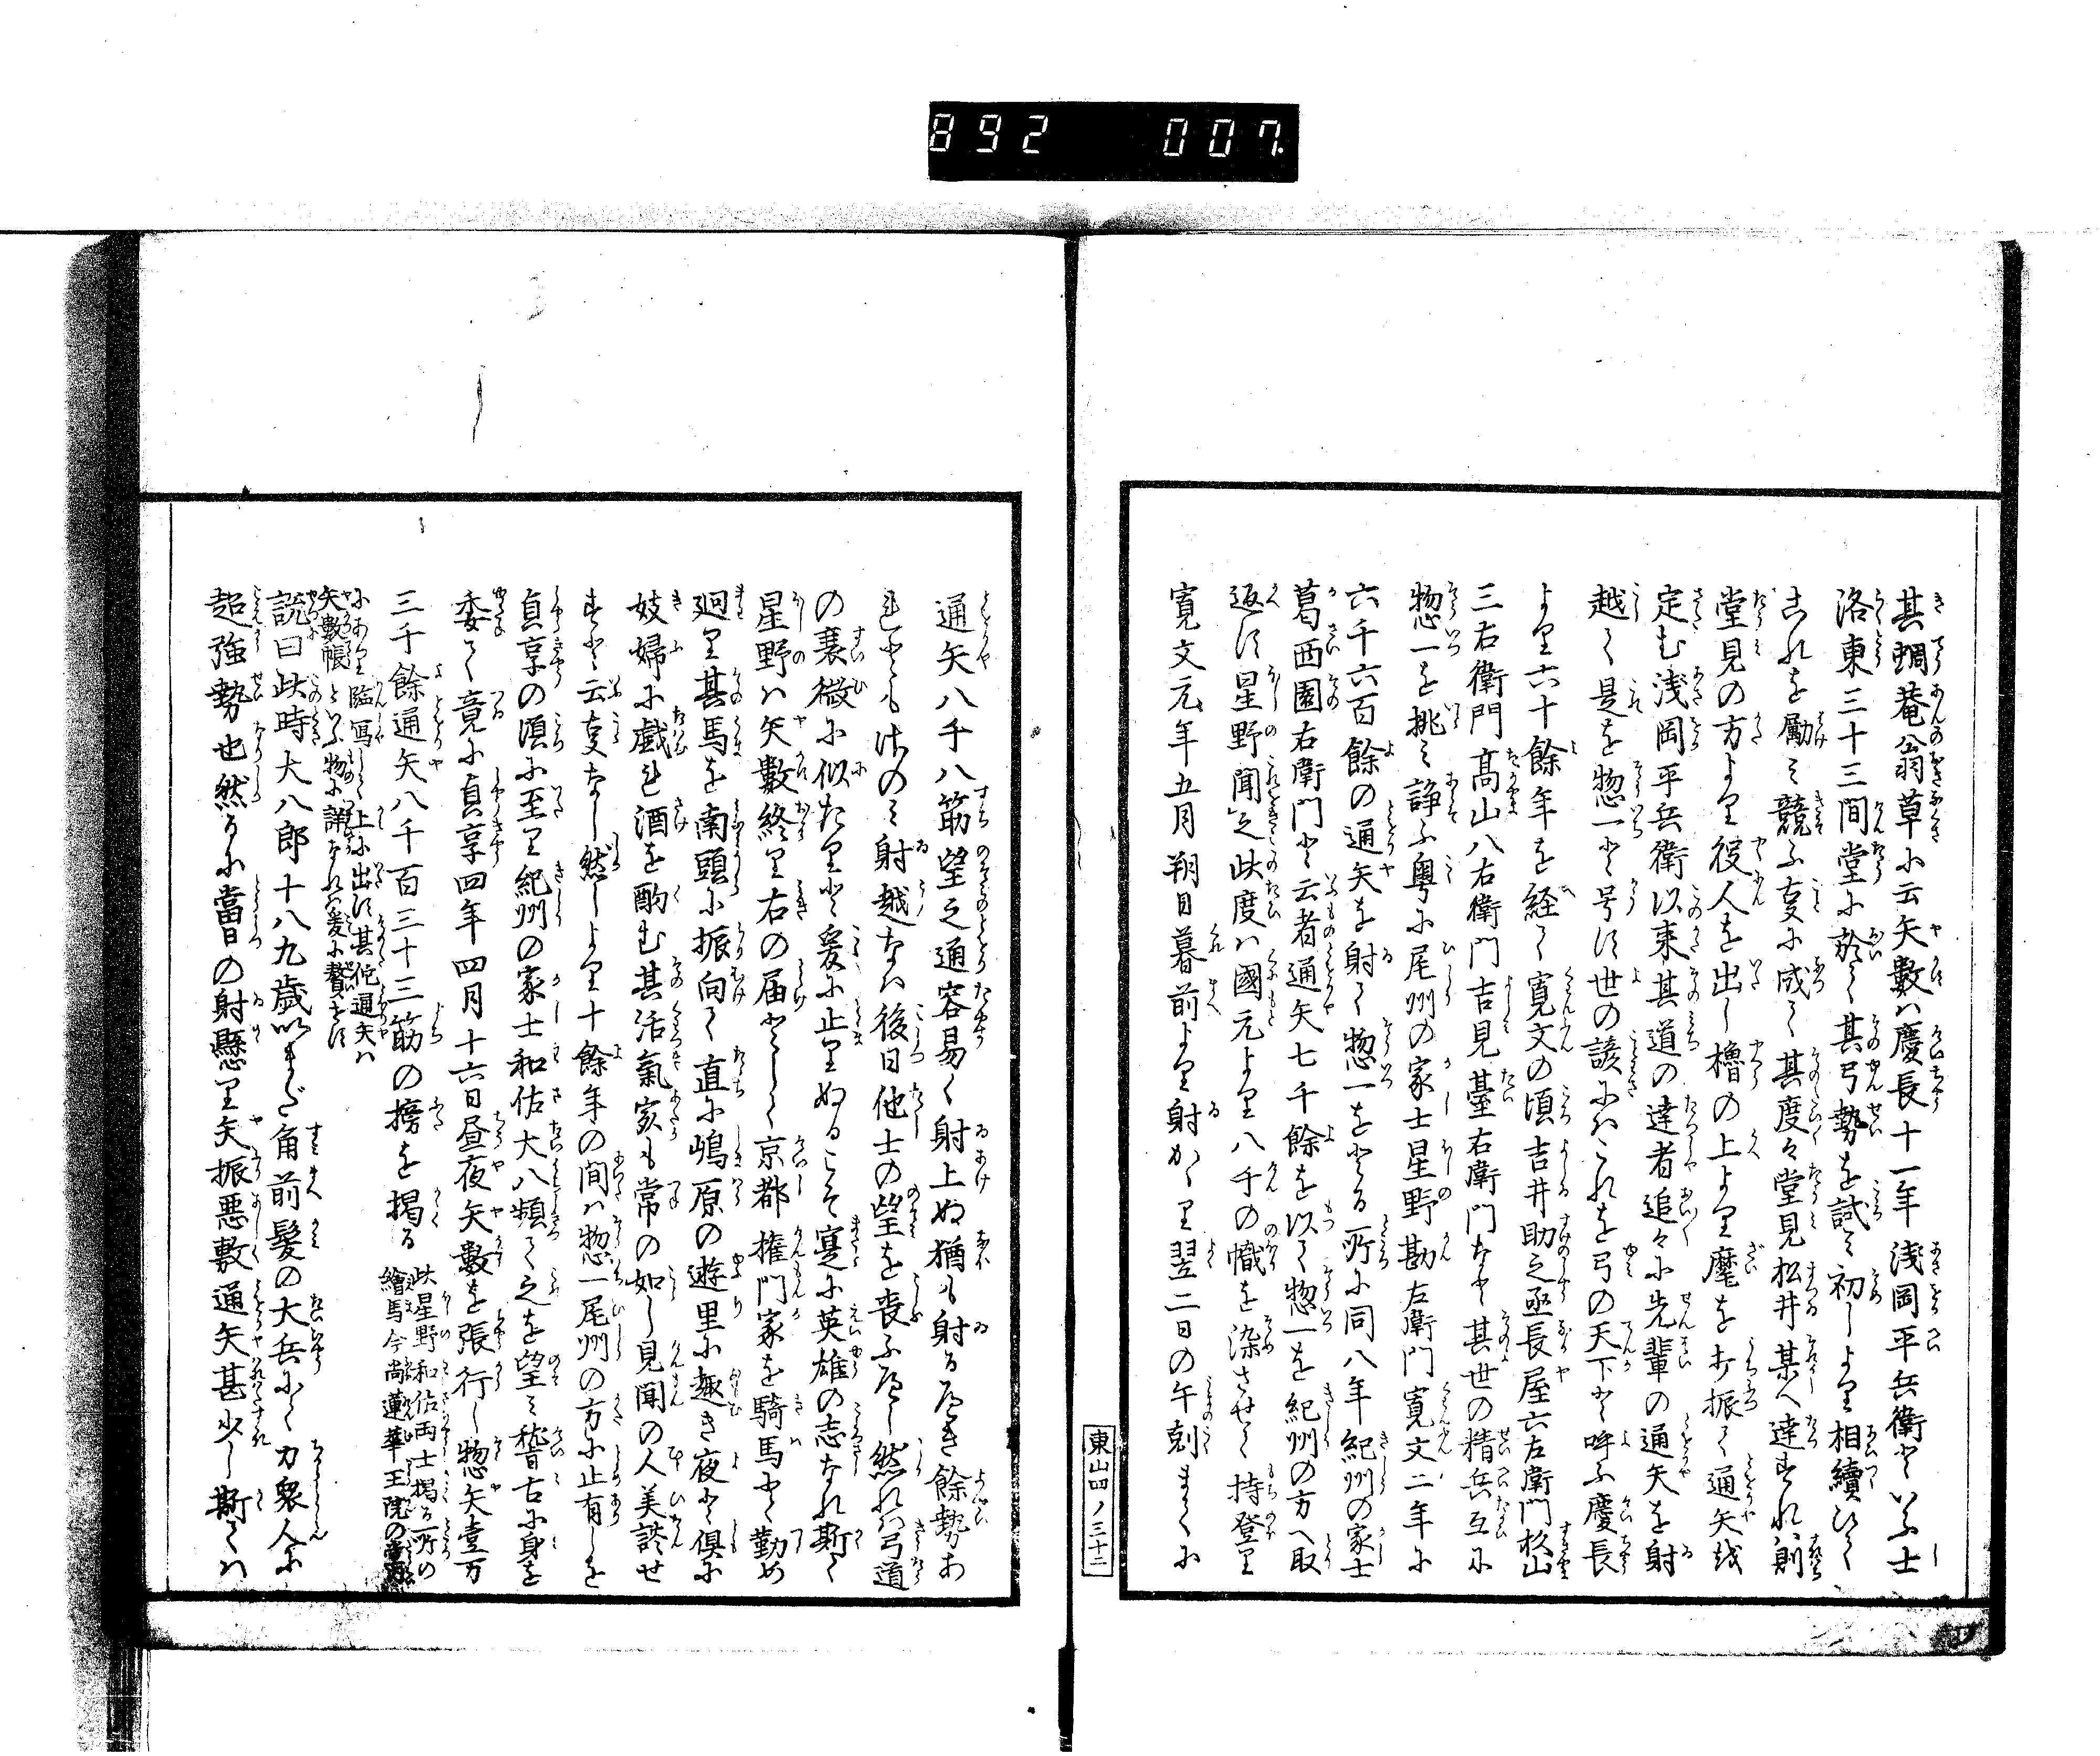 892 007
其蜩菴翁草に云矢数ハ慶長十一年浅岡平兵衛といふ士
洛東三十三間堂に於て其弓勢を試ミ初しより相續ひて
これを勵ミ競ふ事に成て其度々堂見松井某へ達すれハ則
堂見の方より役人を出し櫓の上より麾を打振て通矢を
定む浅岡平兵衛以来其道の達者追々に先輩の通矢を射
越て是を惣一と号す世の諺にハこれを弓の天下と呼ふ慶長
より六十餘年を経て寛文の頃吉井助之丞長屋六左衛門杉山
三右衛門髙山八右衛門吉見臺右衛門など其世の精兵互に
惣一を挑ミ諍ふ粤に尾州の家士星野勘左衛門寛文二年に
六千六百餘の通矢を射て惣一をとる所に同八年紀州の家士
葛西園右衛門と云者通矢七千餘を以て惣一を紀州の方へ取
返す星野聞之此度ハ國元より八千の幟を染させて持登り
寛文元年五月朔日暮前より射かゝり翌二日の午剋までに
東山四ノ三十二
通矢八千八筋望之通容易く射上ぬ猶も射るべき餘勢あ
れども此のミ射越なハ後日他士の望を喪ふべし然れハ弓道
の衰微に似たりと爰に止りぬるこそ寔に英雄の志なれ斯て
星野ハ矢數終り右の届として京都権門家を騎馬にて勤め
廻り其馬を南頭に振向て直に嶋原の遊里に趣き夜と倶に
妓婦に戯れ酒を酌む其活氣亥も常の如し見聞の人美談せ
ずと云事なし然しより十餘年の間ハ惣一尾州の方に止有しを
貞享の頃に至り紀州の家士和佐大八頻て之を望ミ稽古に身を
委て竟に貞享四年四月十六日昼夜矢數を張行し惣矢壹万
三千餘通矢八千百三十三筋の㮄を掲る
此星野和佐両士掲る所の
繪馬今尚蓮華王院の堂
にあり臨写して上に出す其佗通矢ハ
矢數帳といふ物に詳なれハ爰に贅せす
説曰此時大八郎十八九歳いまだ角前髪の大兵にて力衆人に
超強勢也然るに當日の射懸り矢振悪敷通矢甚少し斯てハ